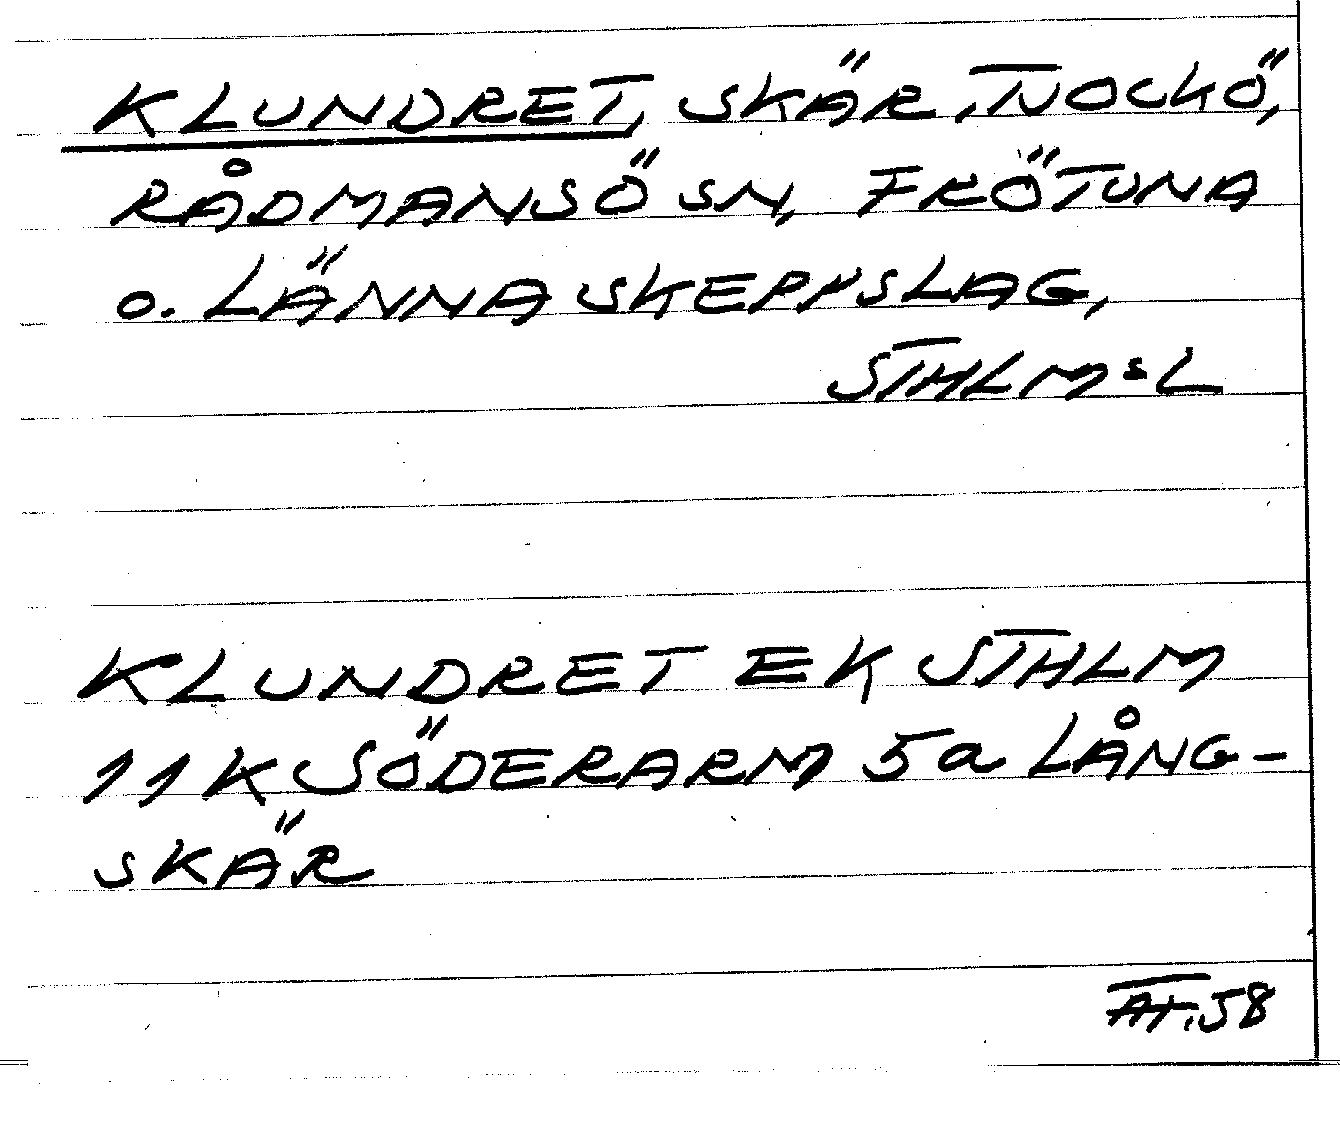 KLUNDRET, SKÄR, TJOCKÖ,
RÅDMANSÖ SN, FRÖTUNA
o. LÄNNA SKEPPSLAG,
STHLMSL
KLUNDRET EK STHLM
11K SÖDERARM 5a LÅNG-
SKÄR
AT.58